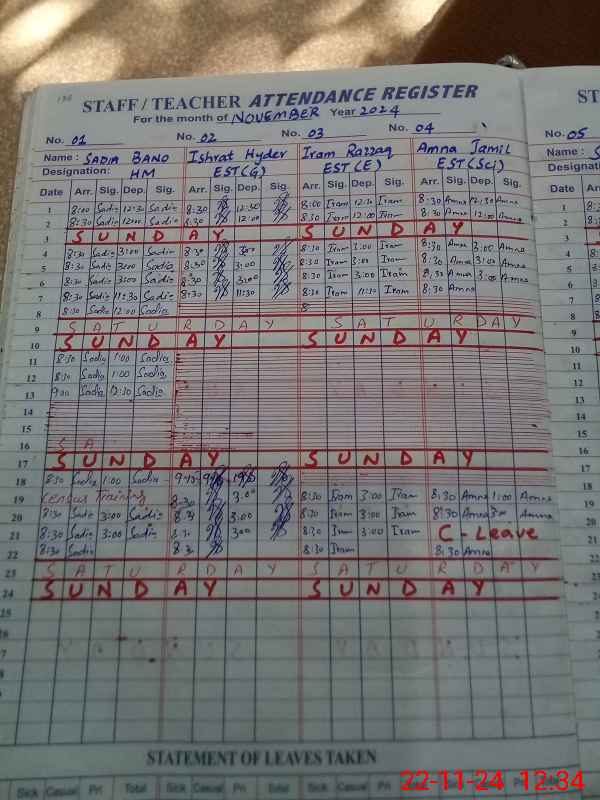 STAFF / TEACHER ATTENDANCE REGISTER
For the month of NOVEMBER Year 2024
No. 01 No. 02 No. 03 No. 04 No. 05
Name : SADIA BANO Ishrat Hyder Iram Razzaq Amna Jamil
Designation: HM EST(G) EST(E) EST(Sci)
Date Arr. Sig. Dep. Sig. Arr. Sig. Dep. Sig. Arr. Sig. Dep. Sig. Arr. Sig. Dep. Sig.
1 8:00 Sadia 12:30 Sadia 8:30 12:30 8:00 Iram 12:30 Iram 8:30 Amna 12:30 Amna
2 8:30 Sadia 12:00 Sadia 8:30 12:00 8:30 Iram 12:00 Iram 8:30 Amna 12:00 Amna
3 SUNDAY SUNDAY
4 8:30 Sadia 3:00 Sadia 8:30 3:00 8:30 Iram 3:00 Iram 8:30 Amna 3:00 Amna
5 8:30 Sadia 3:00 Sadia 8:30 3:00 8:30 Iram 3:00 Iram 8:30 Amna 3:00 Amna
6 8:30 Sadia 3:00 Sadia 8:30 3:00 8:30 Iram 3:00 Iram 8:30 Amna 3:00 Amna
7 8:30 Sadia 11:30 Sadia 8:30 11:30 8:30 Iram 11:30 Iram 8:30 Amna
8 8:30 Sadia 12:00 Sadia 8
9 SATURDAY SATURDAY
10 SUNDAY SUNDAY
11 8:30 Sadia 1:00 Sadia
12 8:30 Sadia 1:00 Sadia
13 9:00 Sadia 12:30 Sadia
14
15
16 SA
17 SUNDAY SUNDAY
18 8:30 Sadia 1:00 Sadia
19 Census Training 8:30 3:00 8:30 Iram 3:00 Iram 8:30 Amna 1:00 Amna
20 8:30 Sadia 3:00 Sadia 8:30 3:00 8:30 Iram 3:00 Iram 8:30 Amna 3:00 Amna
21 8:30 Sadia 3:00 Sadia 8:30 3:00 8:30 Iram 3:00 Iram C - Leave
22 8:30 Sadia 8:30 8:30 Iram 8:30 Amna
23 SATURDAY SATURDAY
24 SUNDAY SUNDAY
25
26
27
28
29
30
31
STATEMENT OF LEAVES TAKEN
Sick Casual Pri Total Sick Casual Pri Total Sick Casual Pri
22-11-24 12:34